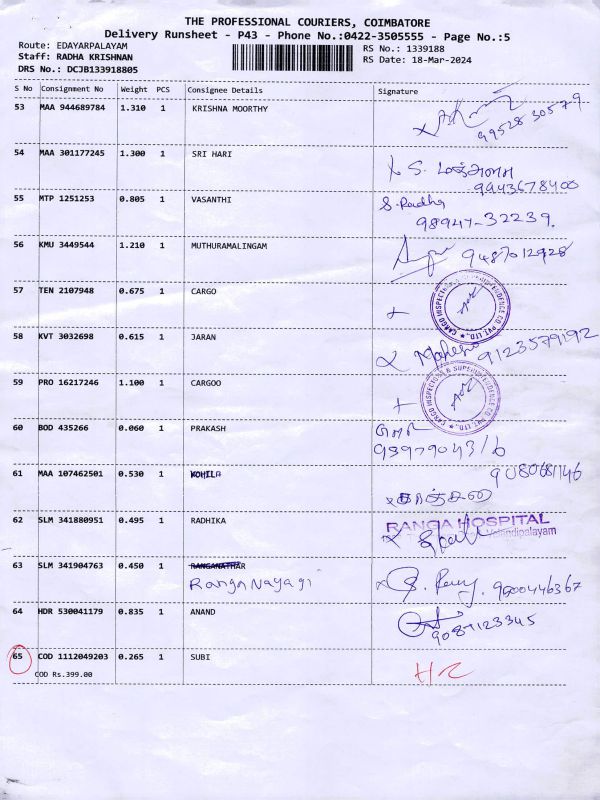 THE PROFESSIONAL COURIERS, COIMBATORE
Delivery Runsheet - P43 - Phone No.:0422-3505555 - Page No.:5
Route: EDAYARPALAYAM
RS No.: 1339188
Staff: RADHA KRISHNAN
RS Date: 18-Mar-2024
DRS No.: DCJB133918805
S No Consignment No Weight PCS Consignee Details Signature
53 MAA 944689784 1.310 1 KRISHNA MOORTHY
99528 30579
54 MAA 301177245 1.300 1 SRI HARI
x S.
9943678400
55 MTP 1251253 0.805 1 VASANTHI S. Radha
98947-32239.
56 KMU 3449544 1.210 1 MUTHURAMALINGAM 9487012928
57 TEN 2107948 0.675 1 CARGO
CARGO INSPECTORS & SUPERINTENDENCE CO. PVT. LTD.,
58 KVT 3032698 0.615 1 JARAN
x Mahesh 9123579192
59 PRO 16217246 1.100 1 CARGOO
CARGO INSPECTORS & SUPERINTENDENCE CO. PVT. LTD.,
60 BOD 435266 0.060 1 PRAKASH
61 MAA 107462501 0.530 1 KOHILA
62 SLM 341880951 0.495 1 RADHIKA
RANGA HOSPITAL
Velandipalayam
63 SLM 341904763 0.450 1 RANGANATHAR
Ranganayagi
9500446367
64 HDR 530041179 0.835 1 ANAND
9087123345
65 COD 1112049203 0.265 1 SUBI
COD Rs.399.00